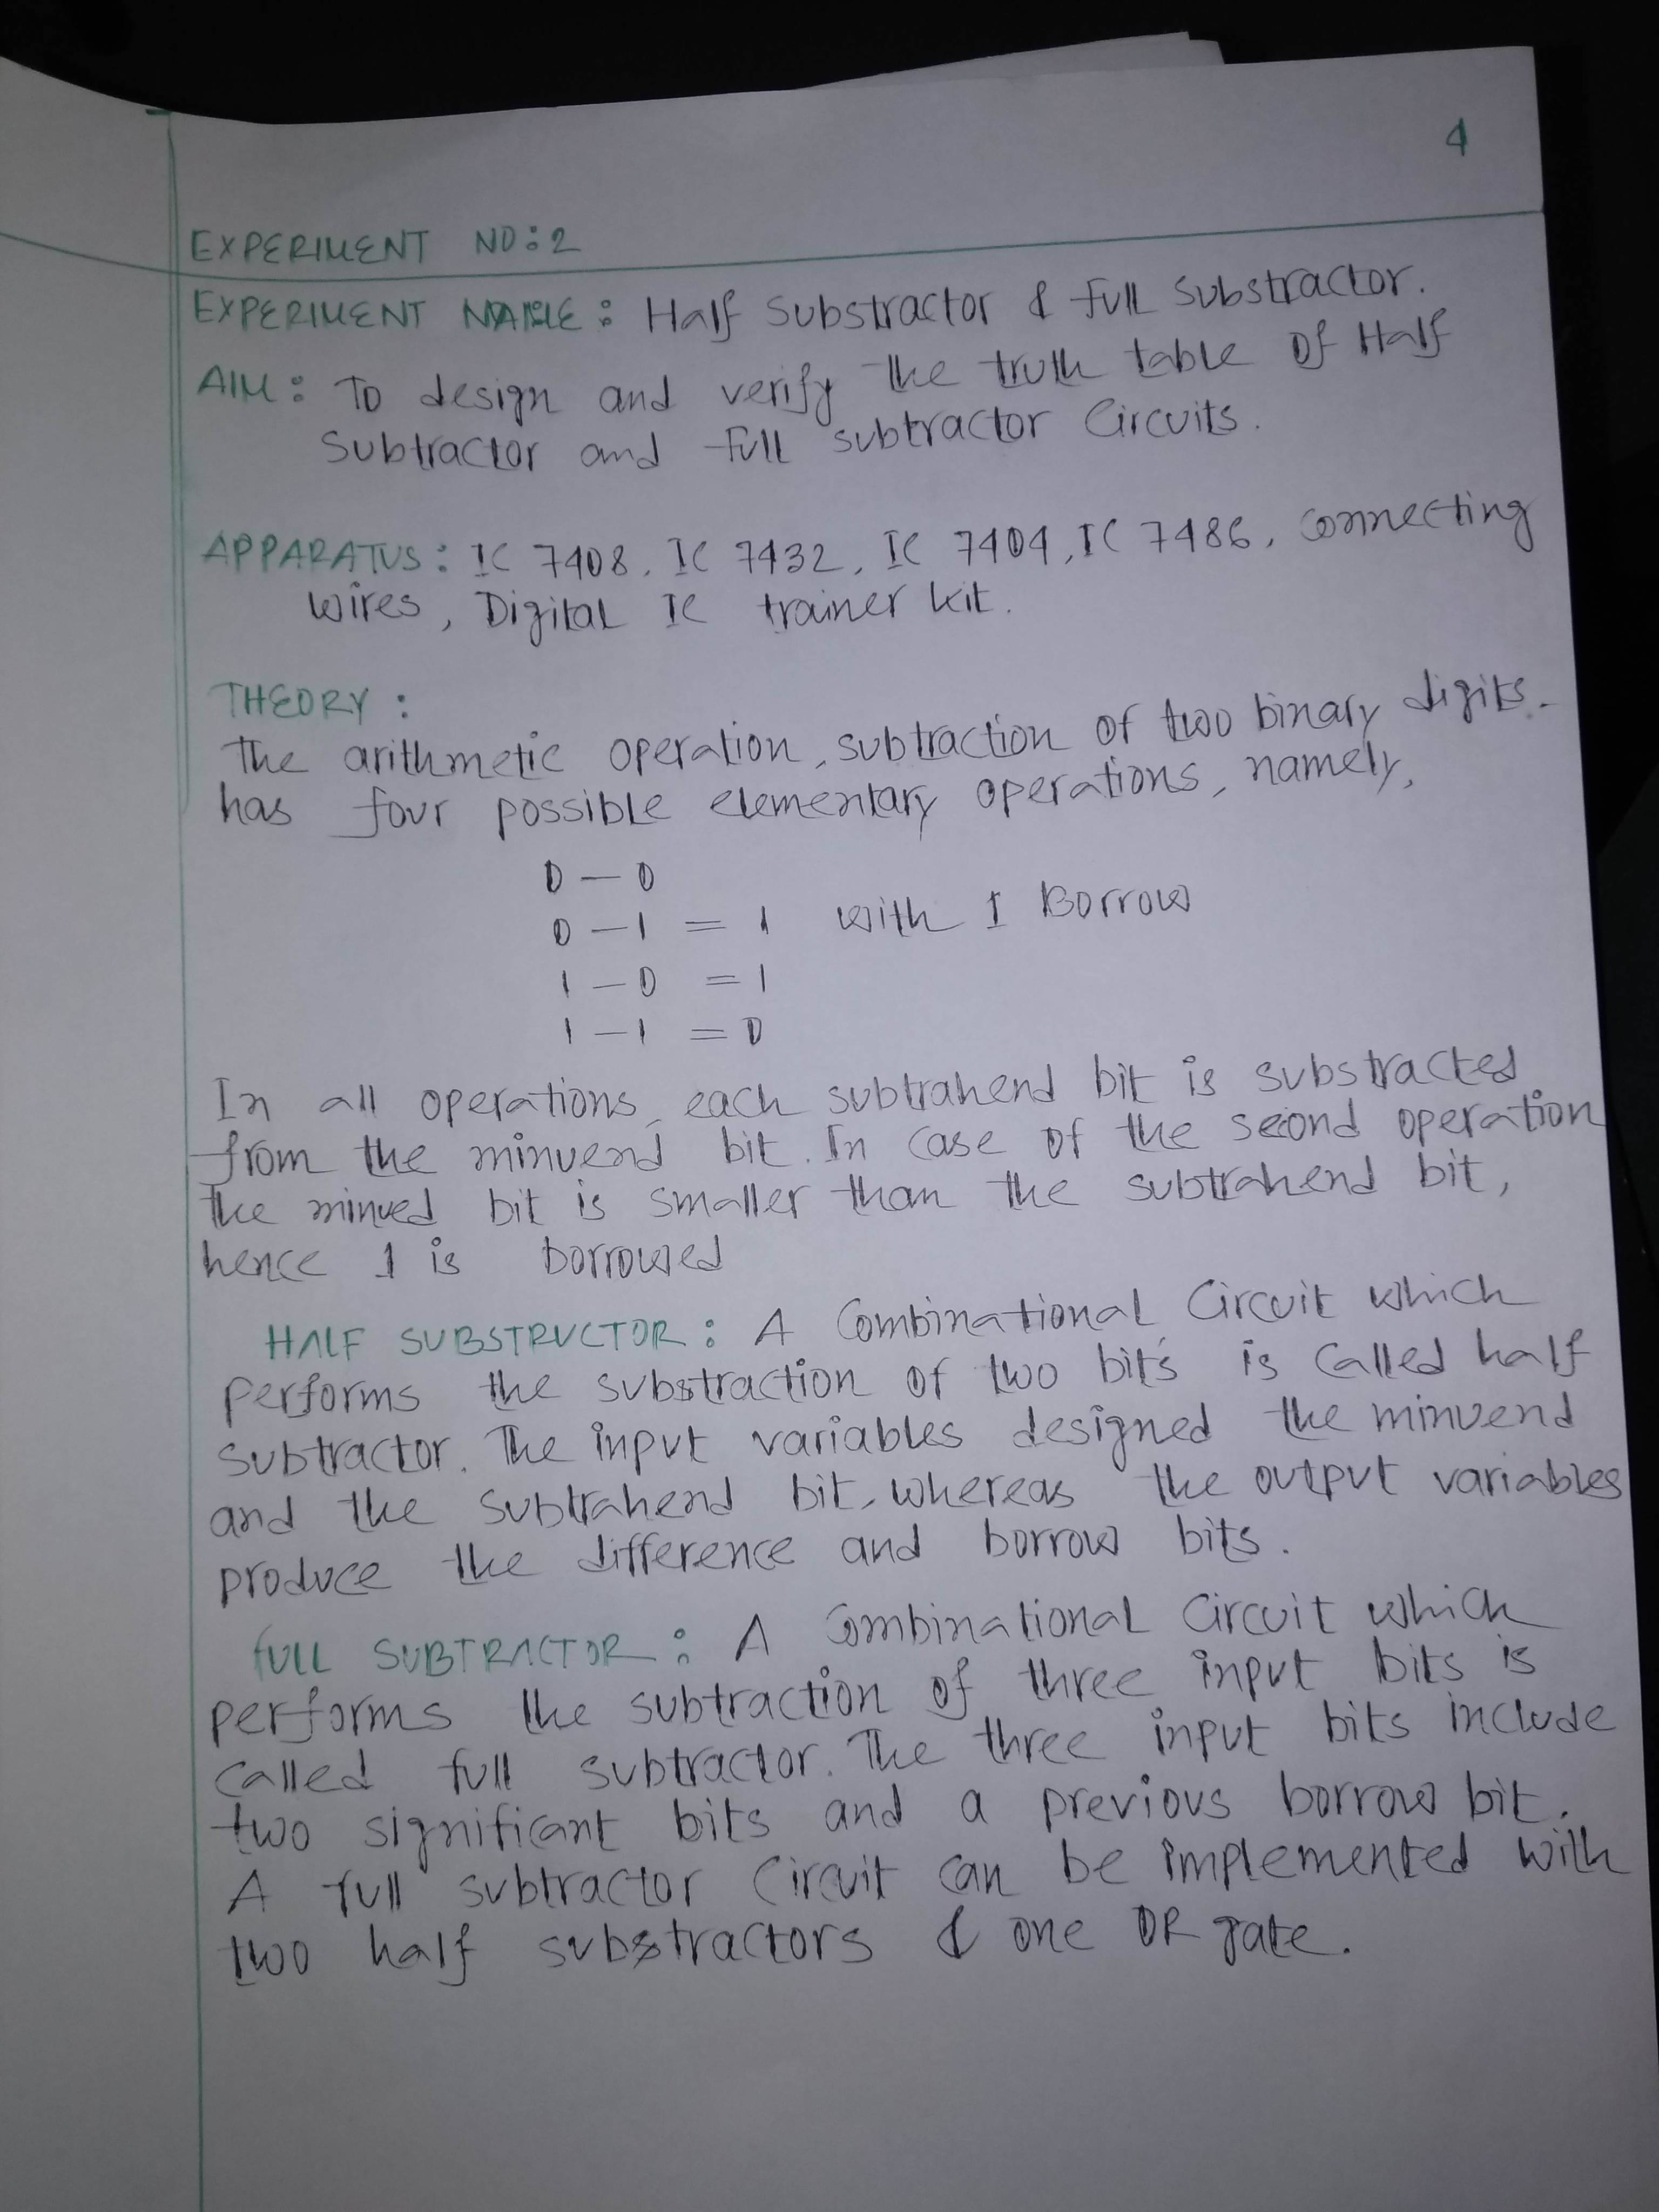 4
EXPERIMENT NO:2
EXPERIMENT NAME: Half Substractor & full substractor.
AIM: To design and verify the truth table of Half
Subtractor and full subtractor Circuits.
APPARATUS: IC 7408, IC 7432, IC 7404, IC 7486, connecting
wires, Digital IC trainer kit.
THEORY:
The arithmetic operation, subtraction of two binary digits.
has four possible elementary operations, namely,
0 - 0
0 - 1 = 1 with 1 Borrow
1 - 0 = 1
1 - 1 = 0
In all operations, each subtrahend bit is substracted
from the minuend bit. In case of the second operation
the minued bit is smaller than the subtrahend bit,
hence 1 is borrowed
HALF SUBSTRUCTOR: A Combinational Circuit which
performs the substraction of two bits is Called half
subtractor. The input variables designed the minuend
and the subtrahend bit, whereas the output variables
produce the difference and borrow bits.
FULL SUBTRACTOR: A Combinational Circuit which
performs the subtraction of three input bits is
Called full subtractor. The three input bits include
two significant bits and a previous borrow bit.
A full subtractor Circuit can be implemented with
two half substractors & one OR gate.